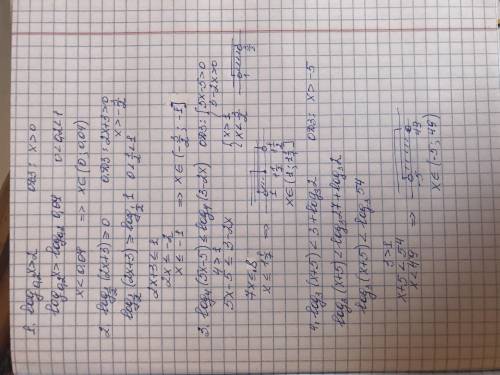 1. log₀,₂x>2 ОДЗ: x>0
log₀,₂x>log₀,₂0,04 0<0,2<1
x<0,04 => x∈(0; 0,04)
2. log½(2x+3)>0 ОДЗ: 2x+3>0
x>-½
log½(2x+3)>log½1 0<½<1
2x+3≤1
2x≤-2
x≤-1 => x∈(-½; -1]
3. log₄(5x-5)≤log₄(3-2x) ОДЗ: {5x-5>0 3-2x>0
4>1 {x>1 x<3/2
5x-5≤3-2x
7x≤8
x≤1 1/7 => x∈(1; 1 1/7]
4. log₃(x+5)<3+log₃2 ОДЗ: x>-5
log₃(x+5)<log₃27+log₃2
log₃(x+5)<log₃54
3>1
x+5<54
x<49 => x∈(-5; 49)